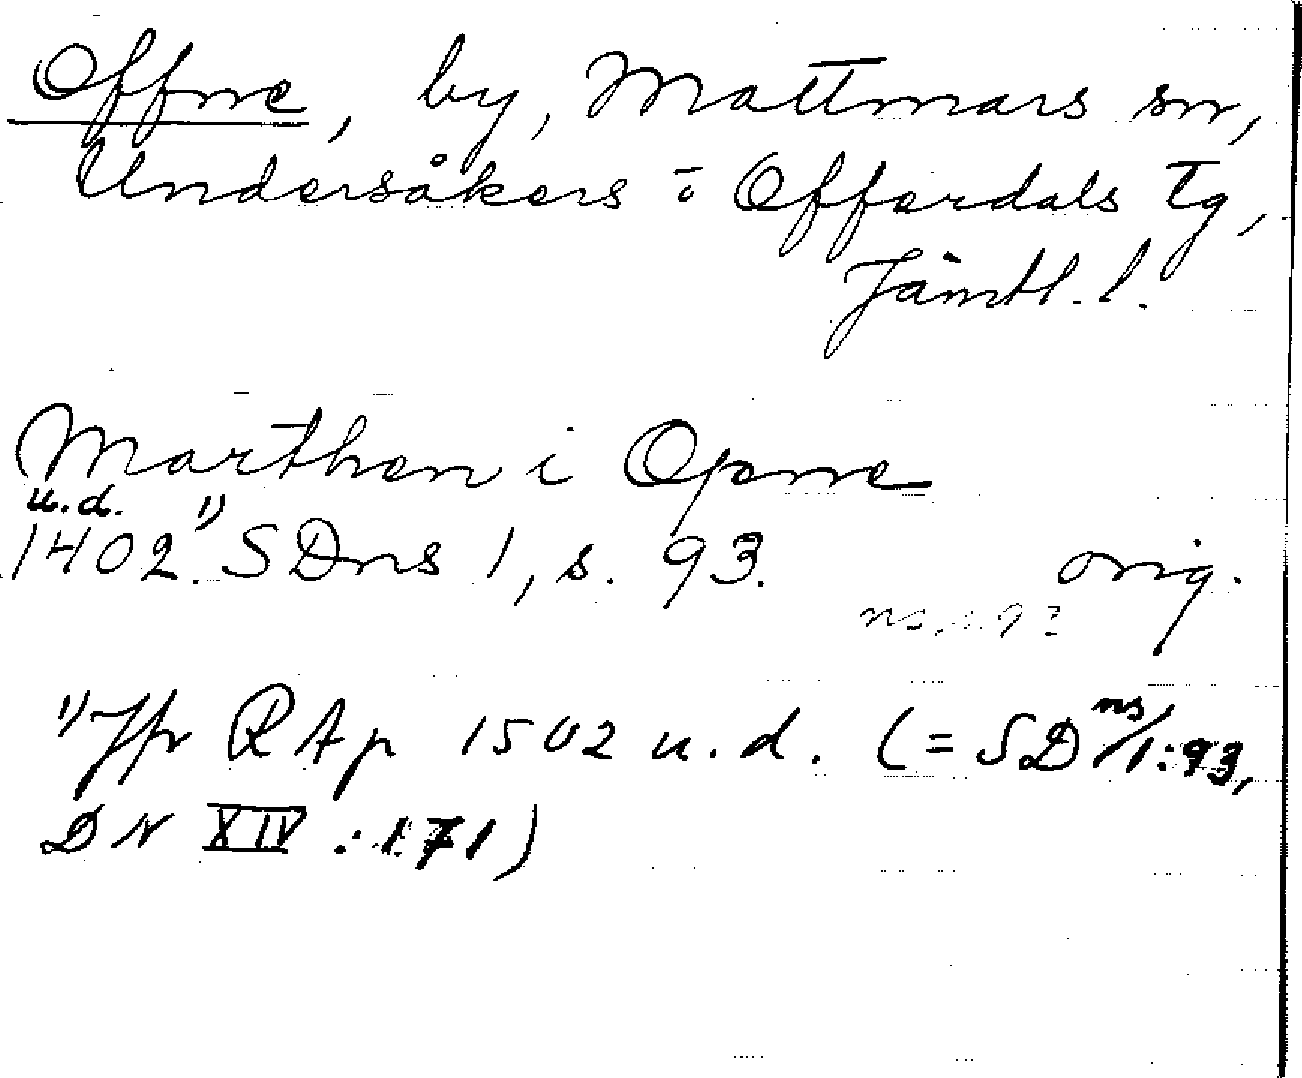 Offne, by, Mattmars sn,
Undersåkers o Offerdals tg,
Jämtl. l.
Marthen i Opne
u.d. 1)
1402. SDns 1, s. 93. orig.
1) Jfr RAp 1502 u.d. (= SD ns/1:93,
DN XIV : 171)